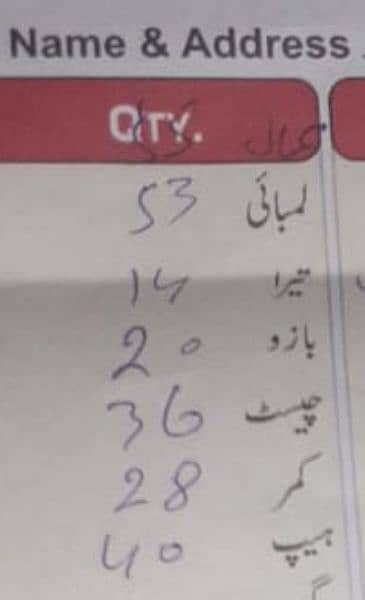 Name & Address
QTY.
53 لمبائی
14 تیرا
20 بازو
36 چیسٹ
28 کمر
40 ہیپ